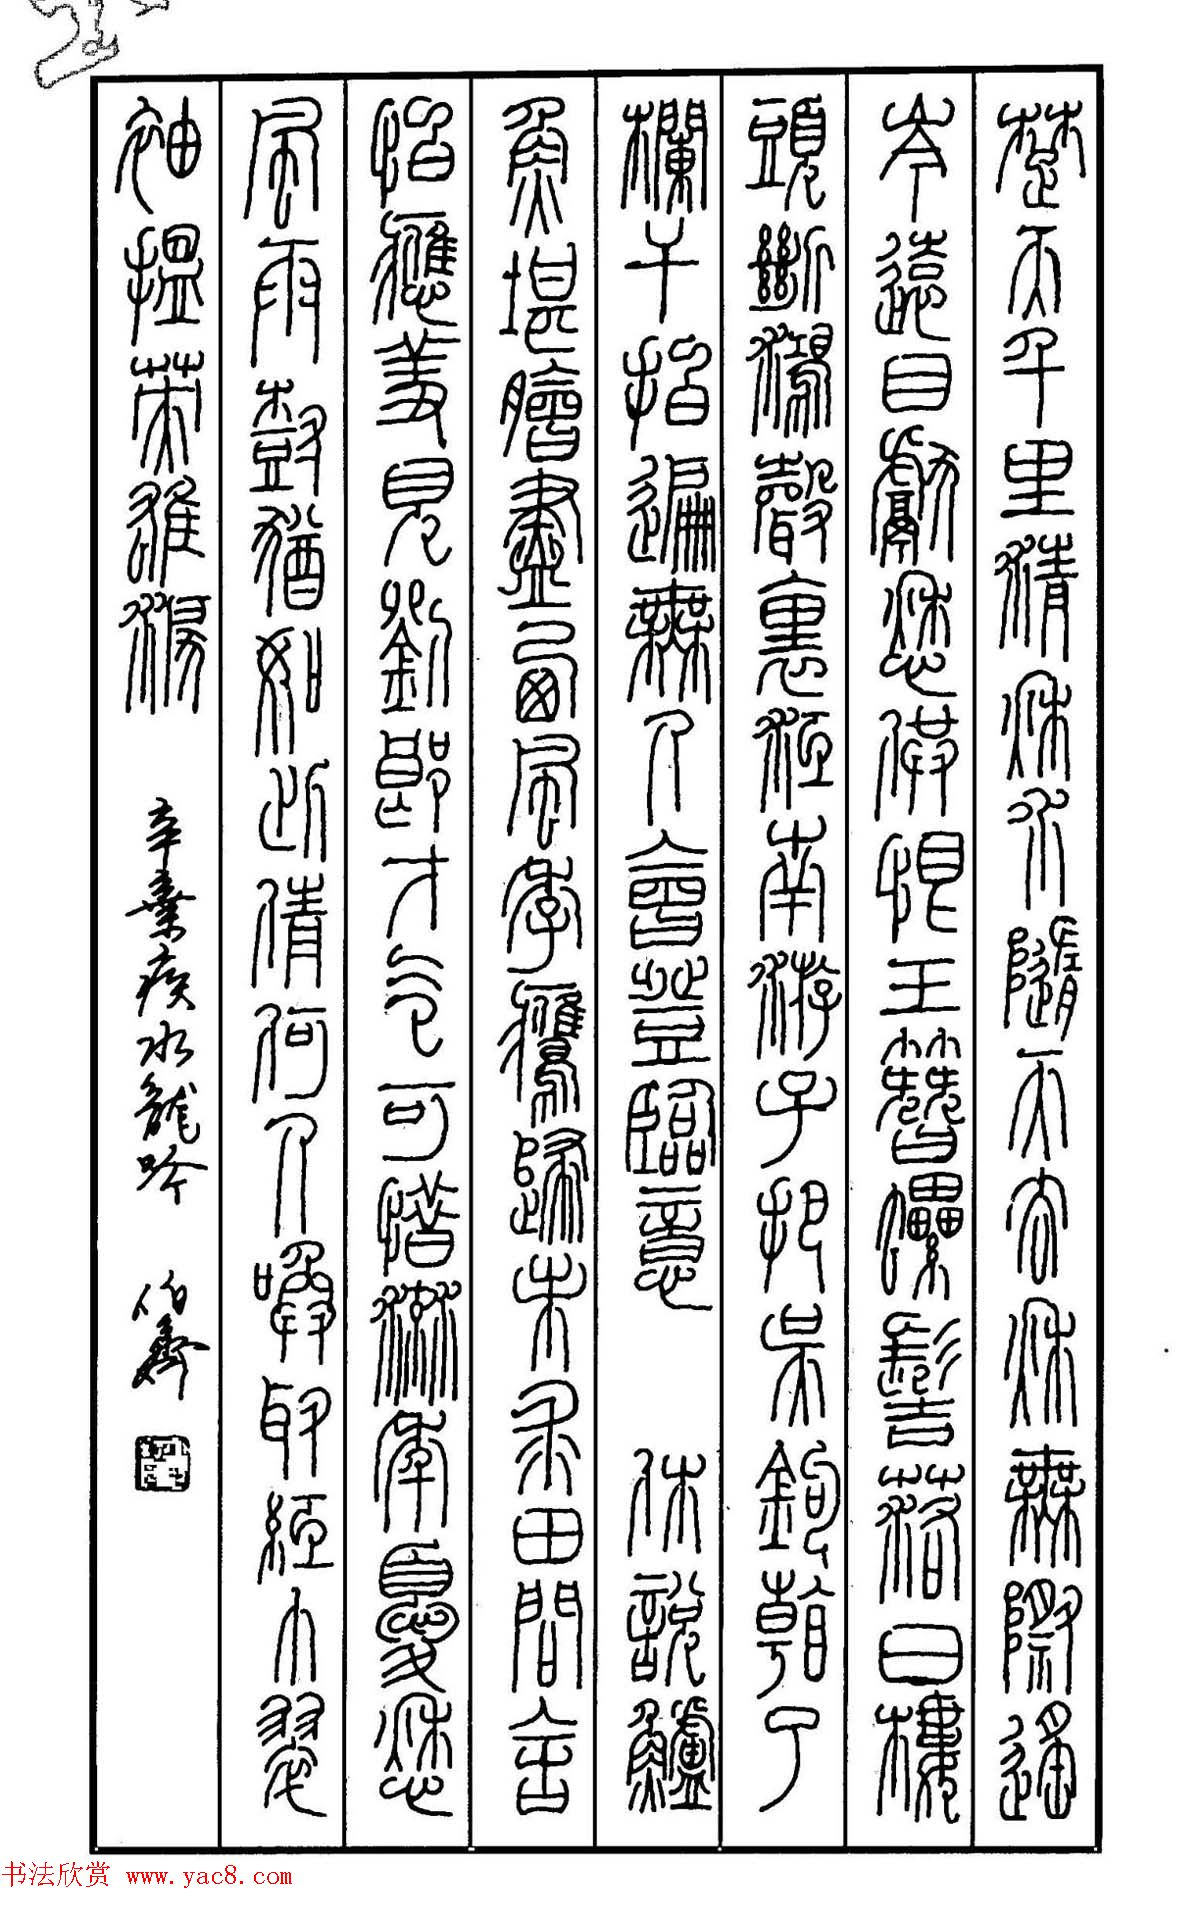 楚天千里清秋水隨天去秋無際遙
岑遠目獻愁供恨玉簪螺髻落日樓
頭斷鴻聲裏江南游子把吳鉤看了
欄干拍遍無人會登臨意 休說鱸
魚堪膾盡西風季鷹歸未求田問舍
怕應羞見劉郎才氣可惜流年憂愁
風雨樹猶如此倩何人喚取紅巾翠
袖搵英雄淚 辛棄疾水龍吟 伯齊
书法欣赏 www.yac8.com